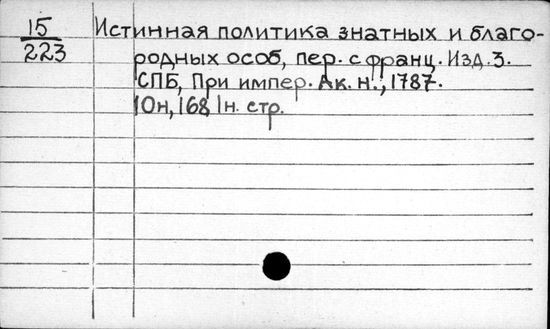 15
223
Истинная политика знатных и благо-
родных особ, пер. с франц. Изд. 3.
СПБ, При импер. Ак. н., 1787.
10н, 168, 1н. стр.